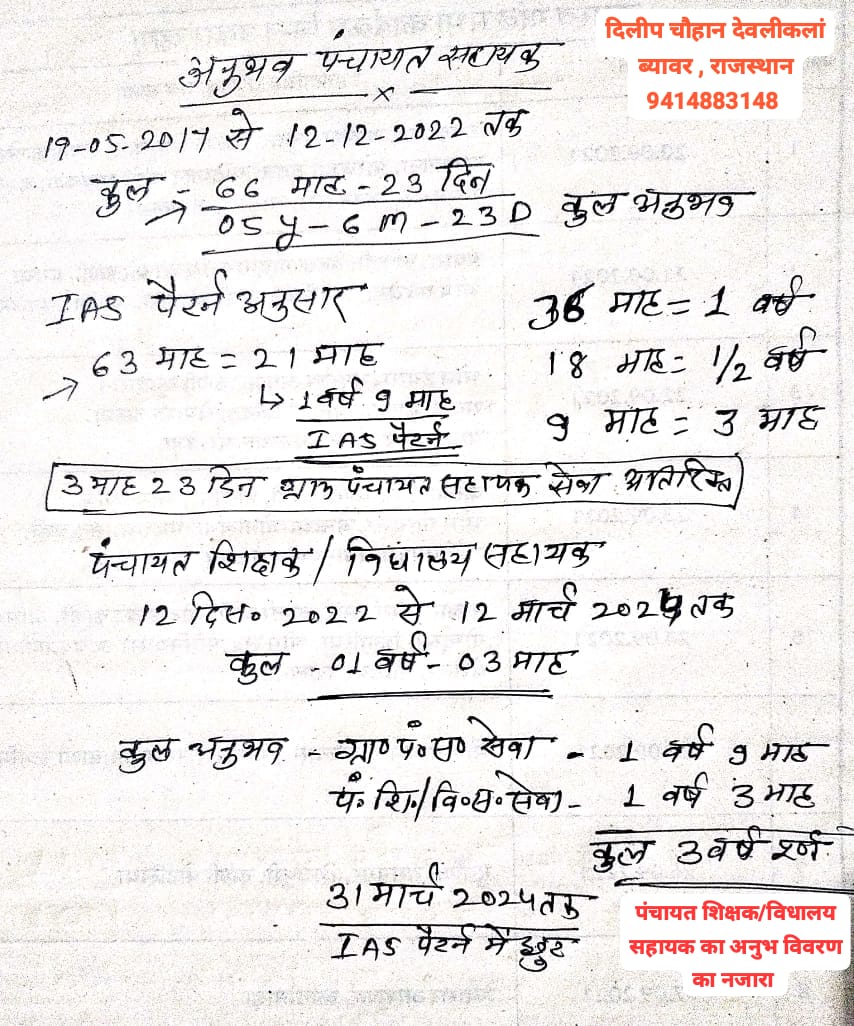 दिलीप चौहान देवलीकलां
ब्यावर , राजस्थान
9414883148
अनुभव पंचायत सहायक
19-05-2017 से 12-12-2022 तक
कुल - 66 माह - 23 दिन
05 y - 6 m - 23 D कुल अनुभव
IAS पैटर्न अनुसार
36 माह = 1 वर्ष
63 माह = 21 माह
18 माह = 1/2 वर्ष
↳ 1 वर्ष 9 माह
9 माह = 3 माह
IAS पैटर्न
3 माह 23 दिन ग्राम पंचायत सहायक सेवा अतिरिक्त
पंचायत शिक्षक / विधालय सहायक
12 दिस० 2022 से 12 मार्च 2024 तक
कुल 01 वर्ष - 03 माह
कुल अनुभव - ग्रा० पं० स० सेवा - 1 वर्ष 9 माह
पं. शि./वि०स०सेवा - 1 वर्ष 3 माह
कुल 3 वर्ष
31 मार्च 2024 तक
IAS पैटर्न में छुट
पंचायत शिक्षक/विधालय
सहायक का अनुभ विवरण
का नजारा